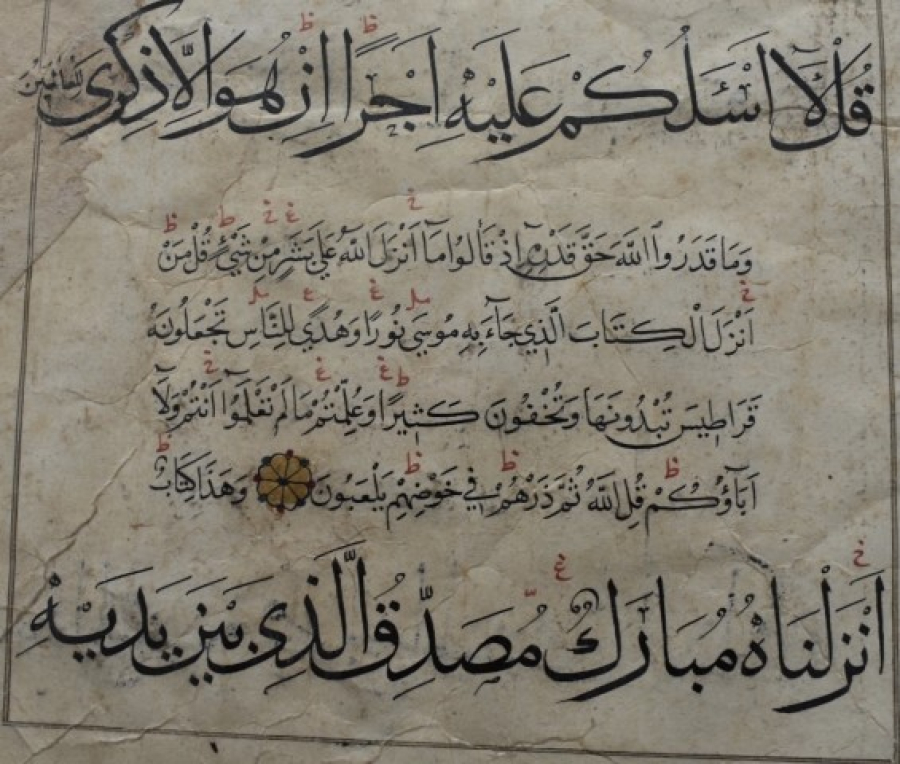 قُلْ لَآ اَسْـَٔلُكُمْ عَلَيْهِ اَجْرًا اِنْ هُوَ اِلَّا ذِكْرٰى لِلْعَالَمِينَ
وَمَا قَدَرُوا اللّٰهَ حَقَّ قَدْرِهٖٓ اِذْ قَالُوا مَآ اَنْزَلَ اللّٰهُ عَلٰى بَشَرٍ مِنْ شَيْئٍ قُلْ مَنْ
اَنْزَلَ الْكِتَابَ الَّذِي جَآءَ بِهٖ مُوسٰى نُورًا وَهُدًى لِلنَّاسِ تَجْعَلُونَهُ
قَرَاطِيسَ تُبْدُونَهَا وَتُخْفُونَ كَثِيرًا وَعُلِّمْتُمْ مَا لَمْ تَعْلَمُوٓا اَنْتُمْ وَلَآ
اٰبَآؤُكُمْ قُلِ اللّٰهُ ثُمَّ ذَرْهُمْ فِي خَوْضِهِمْ يَلْعَبُونَ وَهٰذَا كِتَابٌ
اَنْزَلْنَاهُ مُبَارَكٌ مُصَدِّقُ الَّذِي بَيْنَ يَدَيْهِ